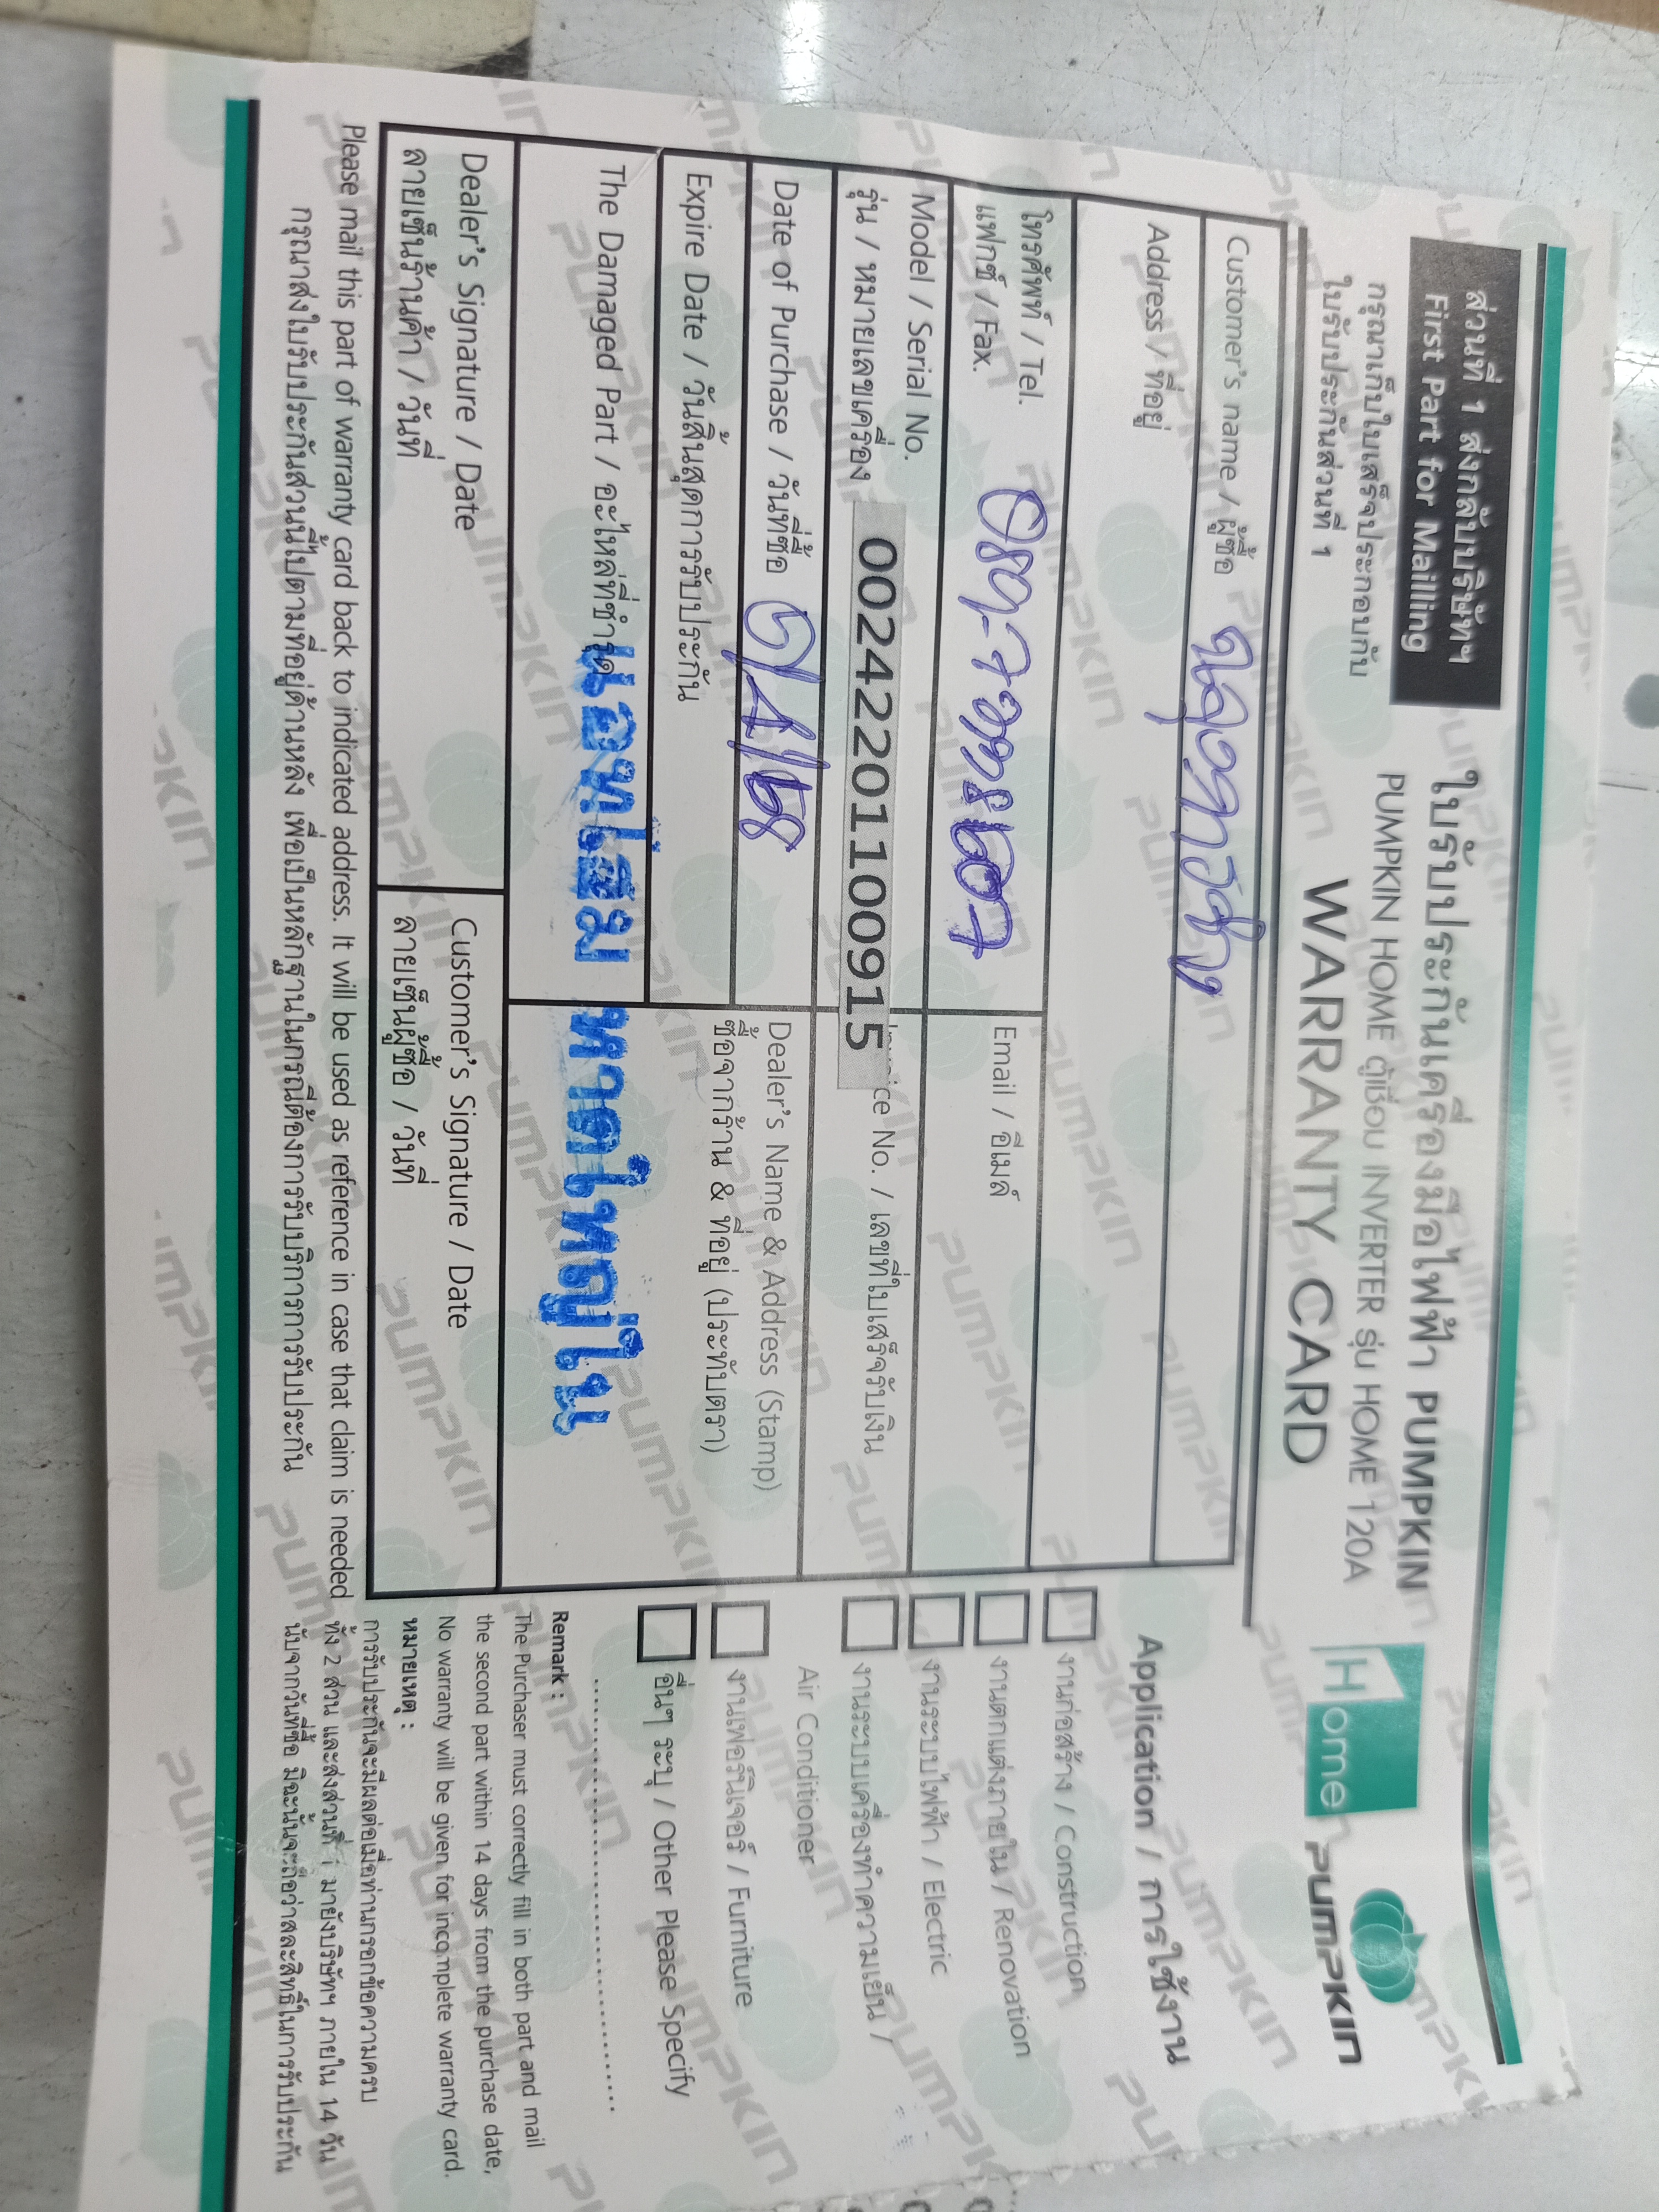 ส่วนที่ 1 ส่งกลับบริษัทฯ
First Part for Mailling
กรุณาเก็บใบเสร็จประกอบกับ
ใบรับประกันส่วนที่ 1
ใบรับประกันเครื่องมือไฟฟ้า PUMPKIN
PUMPKIN HOME ตู้เชื่อม INVERTER รุ่น HOME 120A
WARRANTY CARD
Home
PUMPKIN
Customer's name / ผู้ซื้อ
Address / ที่อยู่
โทรศัพท์ / Tel.
แฟกซ์ / Fax.
Email / อีเมล์
Model / Serial No.
รุ่น / หมายเลขเครื่อง 00242201100915
ice No. / เลขที่ใบเสร็จรับเงิน
Date of Purchase / วันที่ซื้อ
Dealer's Name & Address (Stamp)
ซื้อจากร้าน & ที่อยู่ (ประทับตรา)
Expire Date / วันสิ้นสุดการรับประกัน
The Damaged Part / อะไหล่ที่ชำรุด
หาดใหญ่ใน
Dealer's Signature / Date
ลายเซ็นร้านค้า / วันที่
Customer's Signature / Date
ลายเซ็นผู้ซื้อ / วันที่
Please mail this part of warranty card back to indicated address. It will be used as reference in case that claim is needed
กรุณาส่งใบรับประกันส่วนนี้ไปตามที่อยู่ด้านหลัง เพื่อเป็นหลักฐานในกรณีต้องการรับบริการการรับประกัน
Application / การใช้งาน
งานก่อสร้าง / Construction
งานตกแต่งภายใน / Renovation
งานระบบไฟฟ้า / Electric
งานระบบเครื่องทำความเย็น /
Air Conditioner
งานเฟอร์นิเจอร์ / Furniture
อื่นๆ ระบุ / Other Please Specify
Remark :
The Purchaser must correctly fill in both part and mail
the second part within 14 days from the purchase date,
No warranty will be given for incomplete warranty card.
หมายเหตุ :
การรับประกันจะมีผลต่อเมื่อท่านกรอกข้อความครบ
ทั้ง 2 ส่วน และส่งส่วนที่ 1 มายังบริษัทฯ ภายใน 14 วัน
นับจากวันที่ซื้อ มิฉะนั้นจะถือว่าสละสิทธิ์ในการรับประกัน